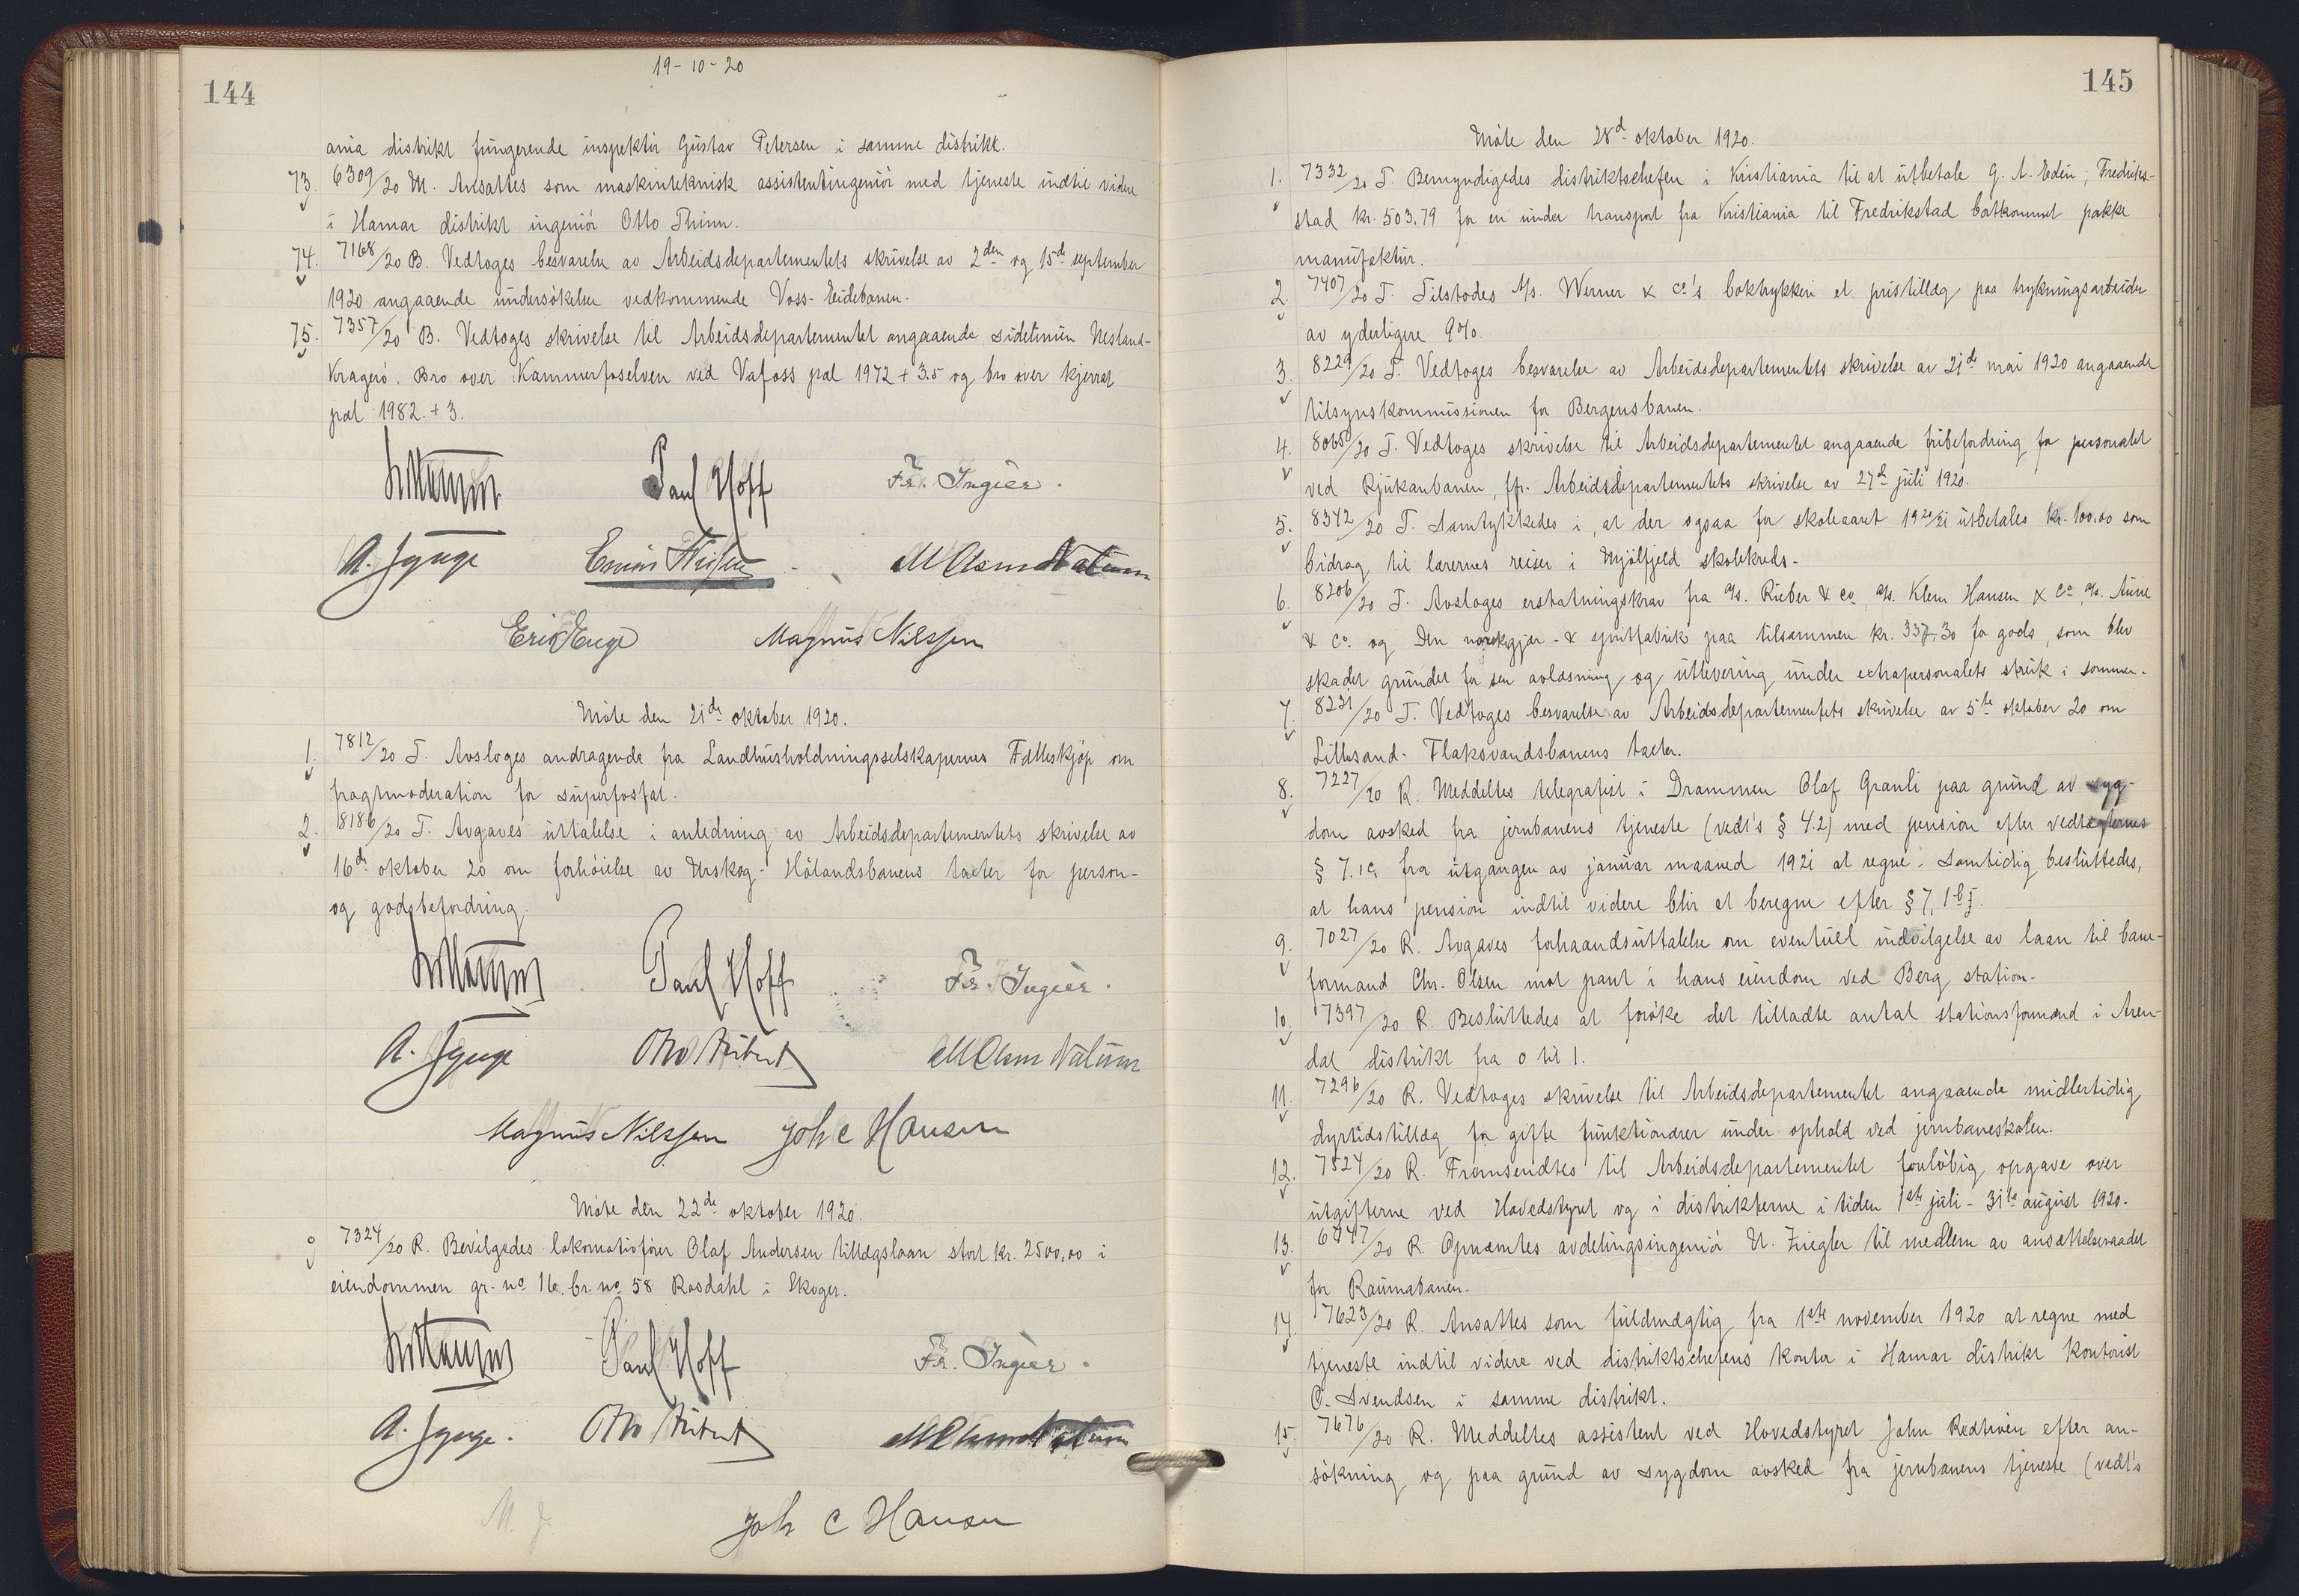 144
19-10-20
ania distrikt fungerende inspektör Gustav Petersen i samme distrikt.
73. 6309/20 M. Ansattes som maskinteknisk assistentingeniör med tjeneste indtil videre
i Hamar distrikt ingeniör Otto Thinn.
74. 7168/20 B. Vedtoges besvarelse av Arbeidsdepartementets skrivelse av 2den og 15de september
1920 angaaende undersökelser vedkommende Voss-Eidebanen.
75. 7357/20 B. Vedtoges skrivelse til Arbeidsdepartementet angaaende sidelinien Nesland-
Kragerö. Bro over Kammerfoselven ved Vafoss pæl 1972 + 3.5 og bro over kjerret
pæl 1982 + 3.
Paul Hoff Fr. Ingier.
Erik Enge Magnus Nilssen
Möte den 21de oktober 1920.
1. 7812/20 T. Avsloges andragende fra Landhusholdningsselskapernes Fælleskjöp om
fragtmoderation for superfosfat.
2. 8186/20 T. Avgaves uttalelse i anledning av Arbeidsdepartementets skrivelse av
16de oktober 20 om forhöielse av Urskog-Hölandsbanens taxter for person-
og godsbefordring.
Paul Hoff Fr. Ingier.
Magnus Nilssen Joh C Hansen
Möte den 22de oktober 1920.
7324/20 R. Bevilgedes lokomotivförer Olaf Andersen tillægslaan stort kr. 2500,00 i
eiendommen gr. no. 16, br. no. 58 Rosdahl i Skoger.
Paul Hoff Fr. Ingier.
Joh C Hansen
145
Möte den 28de oktober 1920.
1. 7332/20 T. Bemyndigedes distriktschefen i Kristiania til at utbetale G. A. Edin, Fredrik-
stad kr. 503,79 for en under transport fra Kristiania til Fredrikstad bortkommet pakke
manufaktur.
2. 7407/20 T. Tilstodes A/s. Werner & Co's boktrykkeri et pristillæg paa trykningsarbeider
av yderligere 9%.
3. 8229/20 T. Vedtoges besvarelse av Arbeidsdepartementets skrivelse av 21de mai 1920 angaaende
tilsynskommissionen for Bergensbanen.
4. 8065/20 T. Vedtoges skrivelse til Arbeidsdepartementet angaaende fribefordring for personalet
ved Rjukanbanen, jfr. Arbeidsdepartementets skrivelse av 27de juli 1920.
5. 8342/20 T. Samtykkedes i, at der ogsaa for skoleaaret 1920/21 utbetales kr. 100,00 som
bidrag til lærernes reiser i Mjölfjeld skolekreds.
6. 8206/20 T. Avsloges erstatningskrav fra A/s. Rieber & Co, A/s. Klem Hansen & Co, A/s. Aune
& Co. og Den norske gjær- & spritfabrik paa tilsammen kr. 337,30 for gods, som blev
skadet grundet for sen avlæsning og utlevering under extrapersonalets streik i sommer.
7. 8231/20 T. Vedtoges besvarelse av Arbeidsdepartementets skrivelse av 5te oktober 20 om
Lillesand-Flaksvandsbanens taxter.
8. 7227/20 R. Meddeltes telegrafist i Drammen Olaf Granli paa grund av syg-
dom avsked fra jernbanens tjeneste (vedt's § 4.2) med pension efter vedtægternes
§ 7.1c fra utgangen av januar maaned 1921 at regne. Samtidig besluttedes,
at hans pension indtil videre blir at beregne efter § 7, 1 b I.
9. 7027/20 R. Avgaves forhaandsuttalelse om eventuell indvilgelse av laan til bane-
formand Chr. Olsen mot pant i hans eiendom ved Berg station.
10. 7397/20 R. Besluttedes at foröke det tilladte antal stationsformænd i Aren-
dal distrikt fra 0 til 1.
11. 7296/20 R. Vedtoges skrivelse til Arbeidsdepartementet angaaende midlertidig
dyrtidstillæg for gifte funktionærer under ophold ved jernbaneskolen.
12. 7524/20 R. Fremsendtes til Arbeidsdepartementet forelöbig opgave over
utgifterne ved Hovedstyret og i distrikterne i tiden 1ste juli - 31te august 1920.
13. 6447/20 R. Opnævntes avdelingsingeniör U. Ziegler til medlem av ansættelsesraadet
for Raumabanen.
14. 7623/20 R. Ansattes som fuldmægtig fra 1ste november 1920 at regne med
tjeneste indtil videre ved distriktschefens kontor i Hamar distrikt kontorist
O. Svendsen i samme distrikt.
15. 7676/20 R. Meddeltes assistent ved Hovedstyret John efter an-
sökning og paa grund av sygdom avsked fra jernbanens tjeneste (vedt's